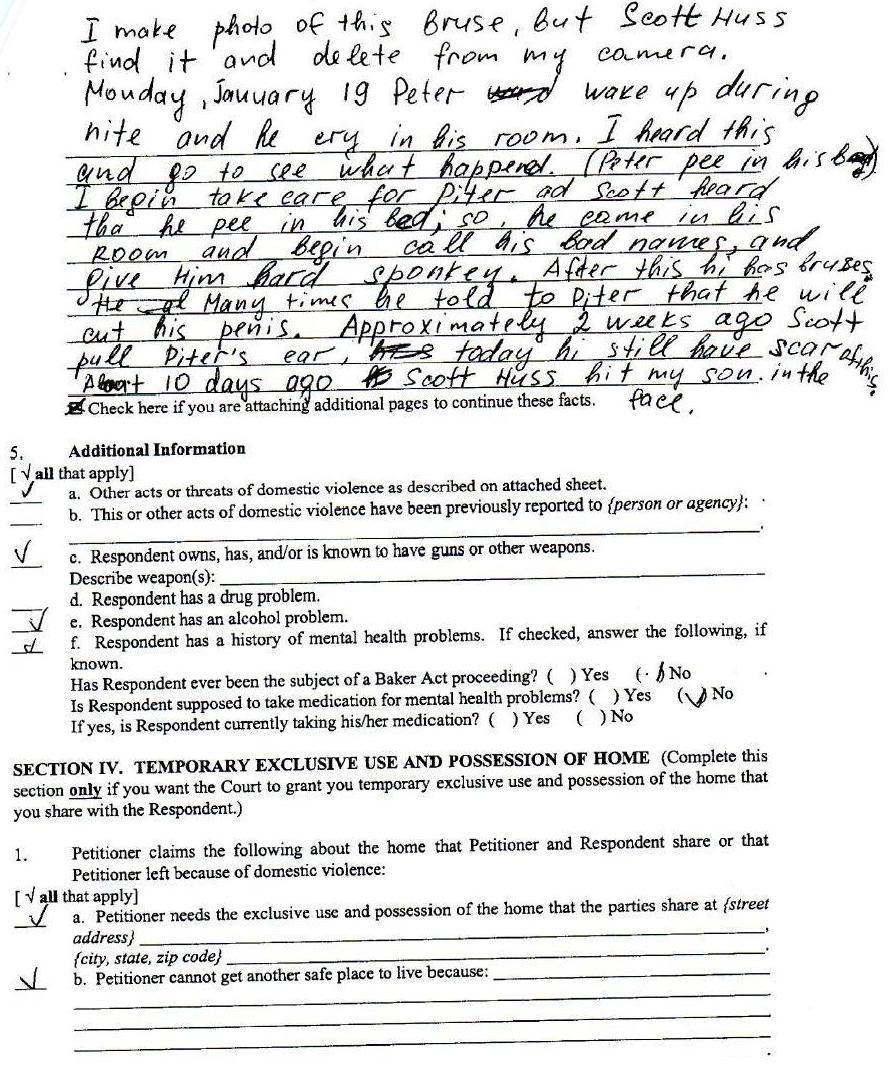 I make photo of this Bruse, But Scott Huss
find it and delete from my camera.
Monday, January 19 Peter wake up during
nite and he cry in his room. I heard this
and go to see what happend. (Peter pee in his bed)
I begin take care for Piter ad Scott heard
tha he pee in his bed; so, he came in his
Room and begin call his bad names, and
give Him hard sponkey. After this hi has bruses.
He Many times he told to Piter that he will
cut his penis. Approximately 2 weeks ago Scott
pull Piter's ear, today hi still have scar of this.
About 10 days ago Scott Huss hit my son. in the
face.
Check here if you are attaching additional pages to continue these facts.
5. Additional Information
[√ all that apply]
√ a. Other acts or threats of domestic violence as described on attached sheet.
b. This or other acts of domestic violence have been previously reported to {person or agency}:
√ c. Respondent owns, has, and/or is known to have guns or other weapons.
Describe weapon(s):
d. Respondent has a drug problem.
√ e. Respondent has an alcohol problem.
√ f. Respondent has a history of mental health problems. If checked, answer the following, if
known.
Has Respondent ever been the subject of a Baker Act proceeding? ( ) Yes (√) No
Is Respondent supposed to take medication for mental health problems? ( ) Yes (√) No
If yes, is Respondent currently taking his/her medication? ( ) Yes ( ) No
SECTION IV. TEMPORARY EXCLUSIVE USE AND POSSESSION OF HOME (Complete this
section only if you want the Court to grant you temporary exclusive use and possession of the home that
you share with the Respondent.)
1. Petitioner claims the following about the home that Petitioner and Respondent share or that
Petitioner left because of domestic violence:
[√ all that apply]
√ a. Petitioner needs the exclusive use and possession of the home that the parties share at {street
address} ,
{city, state, zip code} .
√ b. Petitioner cannot get another safe place to live because:
.